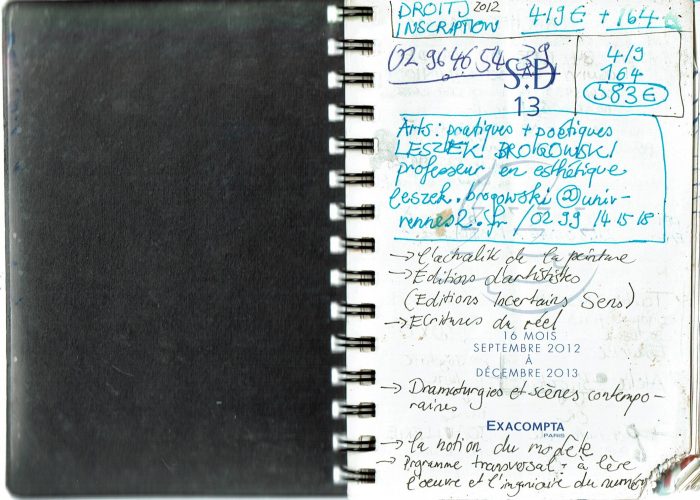 DROITS 2012
INSCRIPTION
419€ + 164€
02 96 46 54 39
419
164
583€
S.D
13
Arts: pratiques + poétiques
LESZEK BROGOWSKI
professeur en esthétique
leszek.brogowski@univ-
rennes2.fr / 02 99 14 15 18
→ l'actualité de la peinture
→ Editions d'artististes
(Editions Incertains Sens)
→ Ecritures du réel
16 MOIS
SEPTEMBRE 2012
À
DÉCEMBRE 2013
→ Dramaturgies et scènes contempo-
raines
EXACOMPTA
PARIS
→ la notion du modèle
→ Programme transversal: à l'ère
l'oeuvre et l'imaginaire du numéri